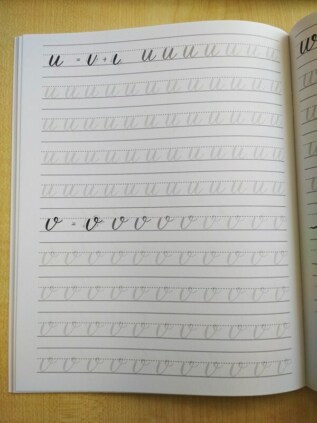 u = v + ι u u u u u u u
u u u u u u u u u u u u
u u u u u u u u u u u u
u u u u u u u u u u u u
u u u u u u u u u u u u
v = v v v v v v v v v
v v v v v v v v v v v
v v v v v v v v v v v
v v v v v v v v v v v
v v v v v v v v v v v